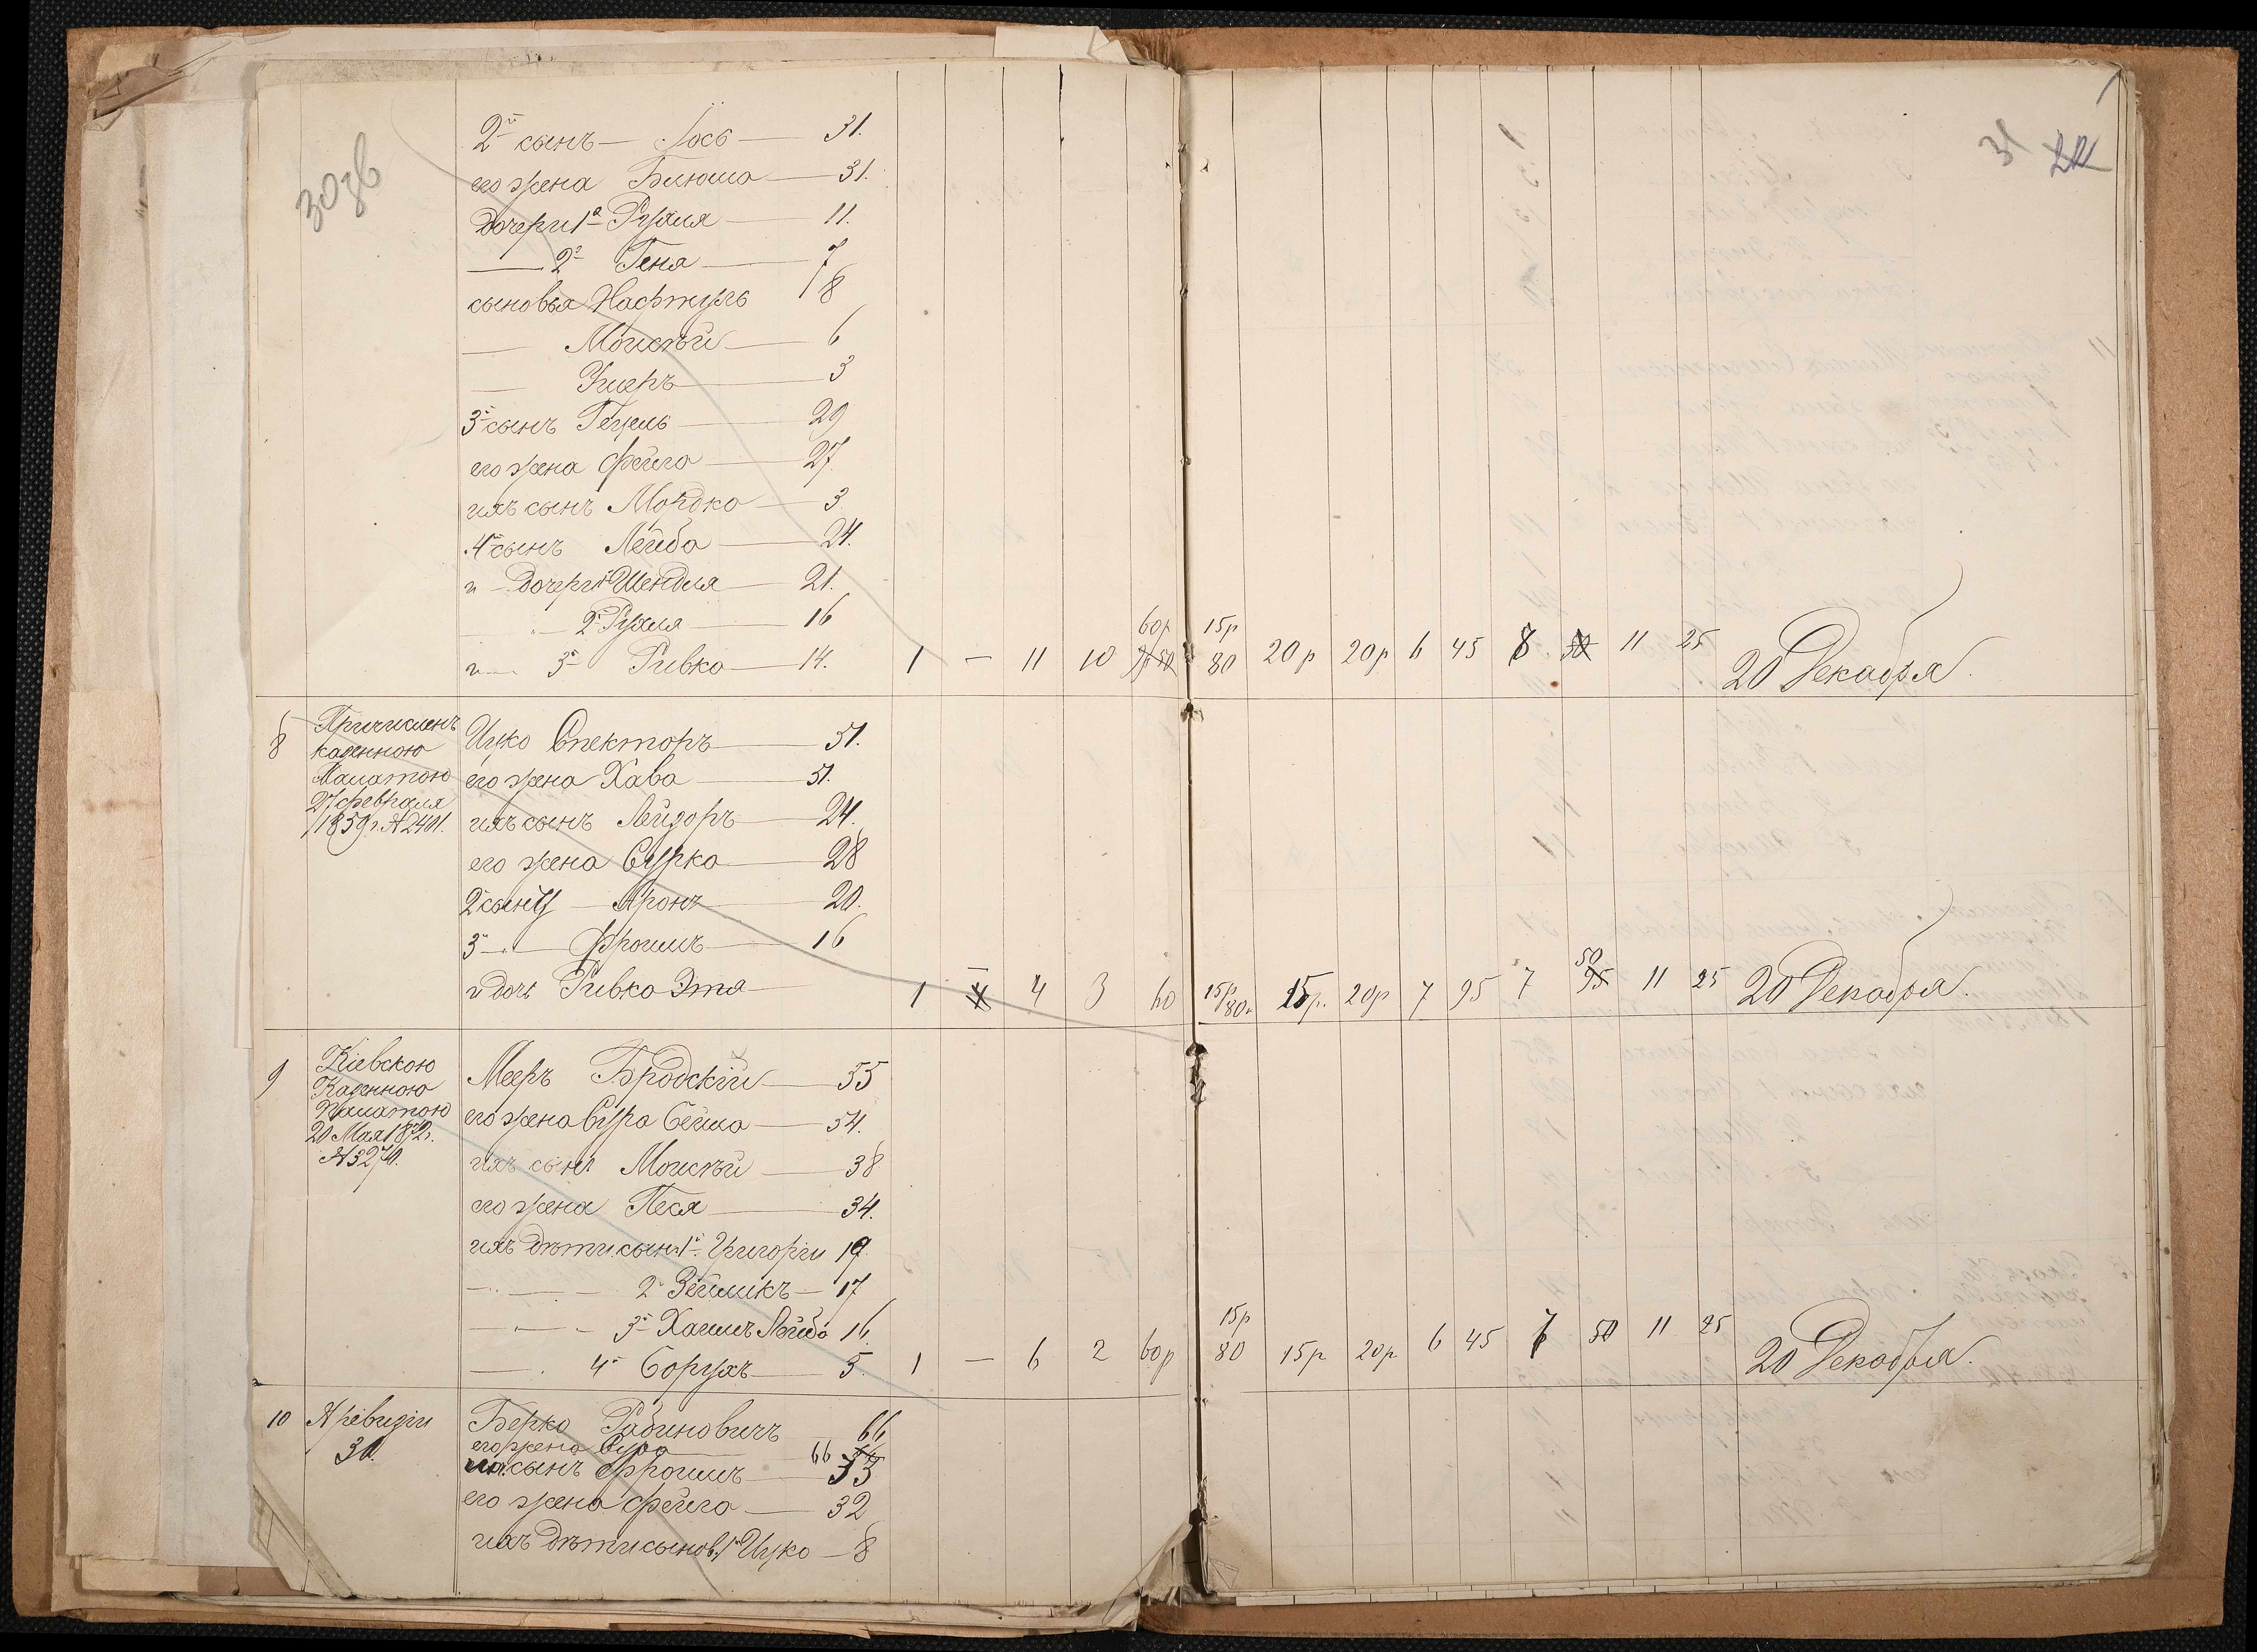 30зв
31
2-й сынъ — Іось — 31.
его жена Блюма — 31.
дочери 1-я Рухля — 11.
— 2-я Геня — 7
сыновья Нафтуль 8
— Моисей — 6
— Ушеръ — 3
3-й сынъ Гецель — 29
его жена Фейга — 27.
ихъ сынъ Мордко — 3
4-й сынъ Лейба — 24.
и — дочери 1 Шендля — 21.
— 2-я Рухля — 16
и — 3-я Ривка — 14. 1 — 11 10 60р 15р 80 20р 20р 6 45 8 50 11 25 20 Декабря.
8 Причисленъ
казенною
Палатою
27 февраля
1859 г. № 2401.
Ицко Спекторъ — 51.
его жена Хава — 51.
ихъ сынъ Лейзоръ — 24.
его жена Сурка — 28
2-й сынъ — Аронъ — 20.
3-й — Фроимъ — 16
и дочь Ривка Этя 1 4 4 3 60 15р 80к 15р. 20р 7 95 7 50 95 11 25 20 Декабря.
9 Кіевскою
Казенною
Палатою
20 Мая 1872г.
№ 3270.
Мееръ Бродскій — 55
его жена Сура Бейла — 54.
ихъ сынъ Моисей — 38
его жена Песя — 34.
ихъ дѣти: сын. 1-й Григорій 19
— 2-й Зейликъ — 17
— 3-й Хаимъ Лейба 16
— 4-й Борухъ — 5. 1 — 6 2 60р 15р 80 15р 20р 6 45 6 50 11 25 20 Декабря.
10 № ревизіи
30.
Берко Рабиновичъ 66
его жена Сура 66
сынъ Фроимъ — 33
его жена Фейга — 32
ихъ дѣти сынов. 1-й Ицко — 8